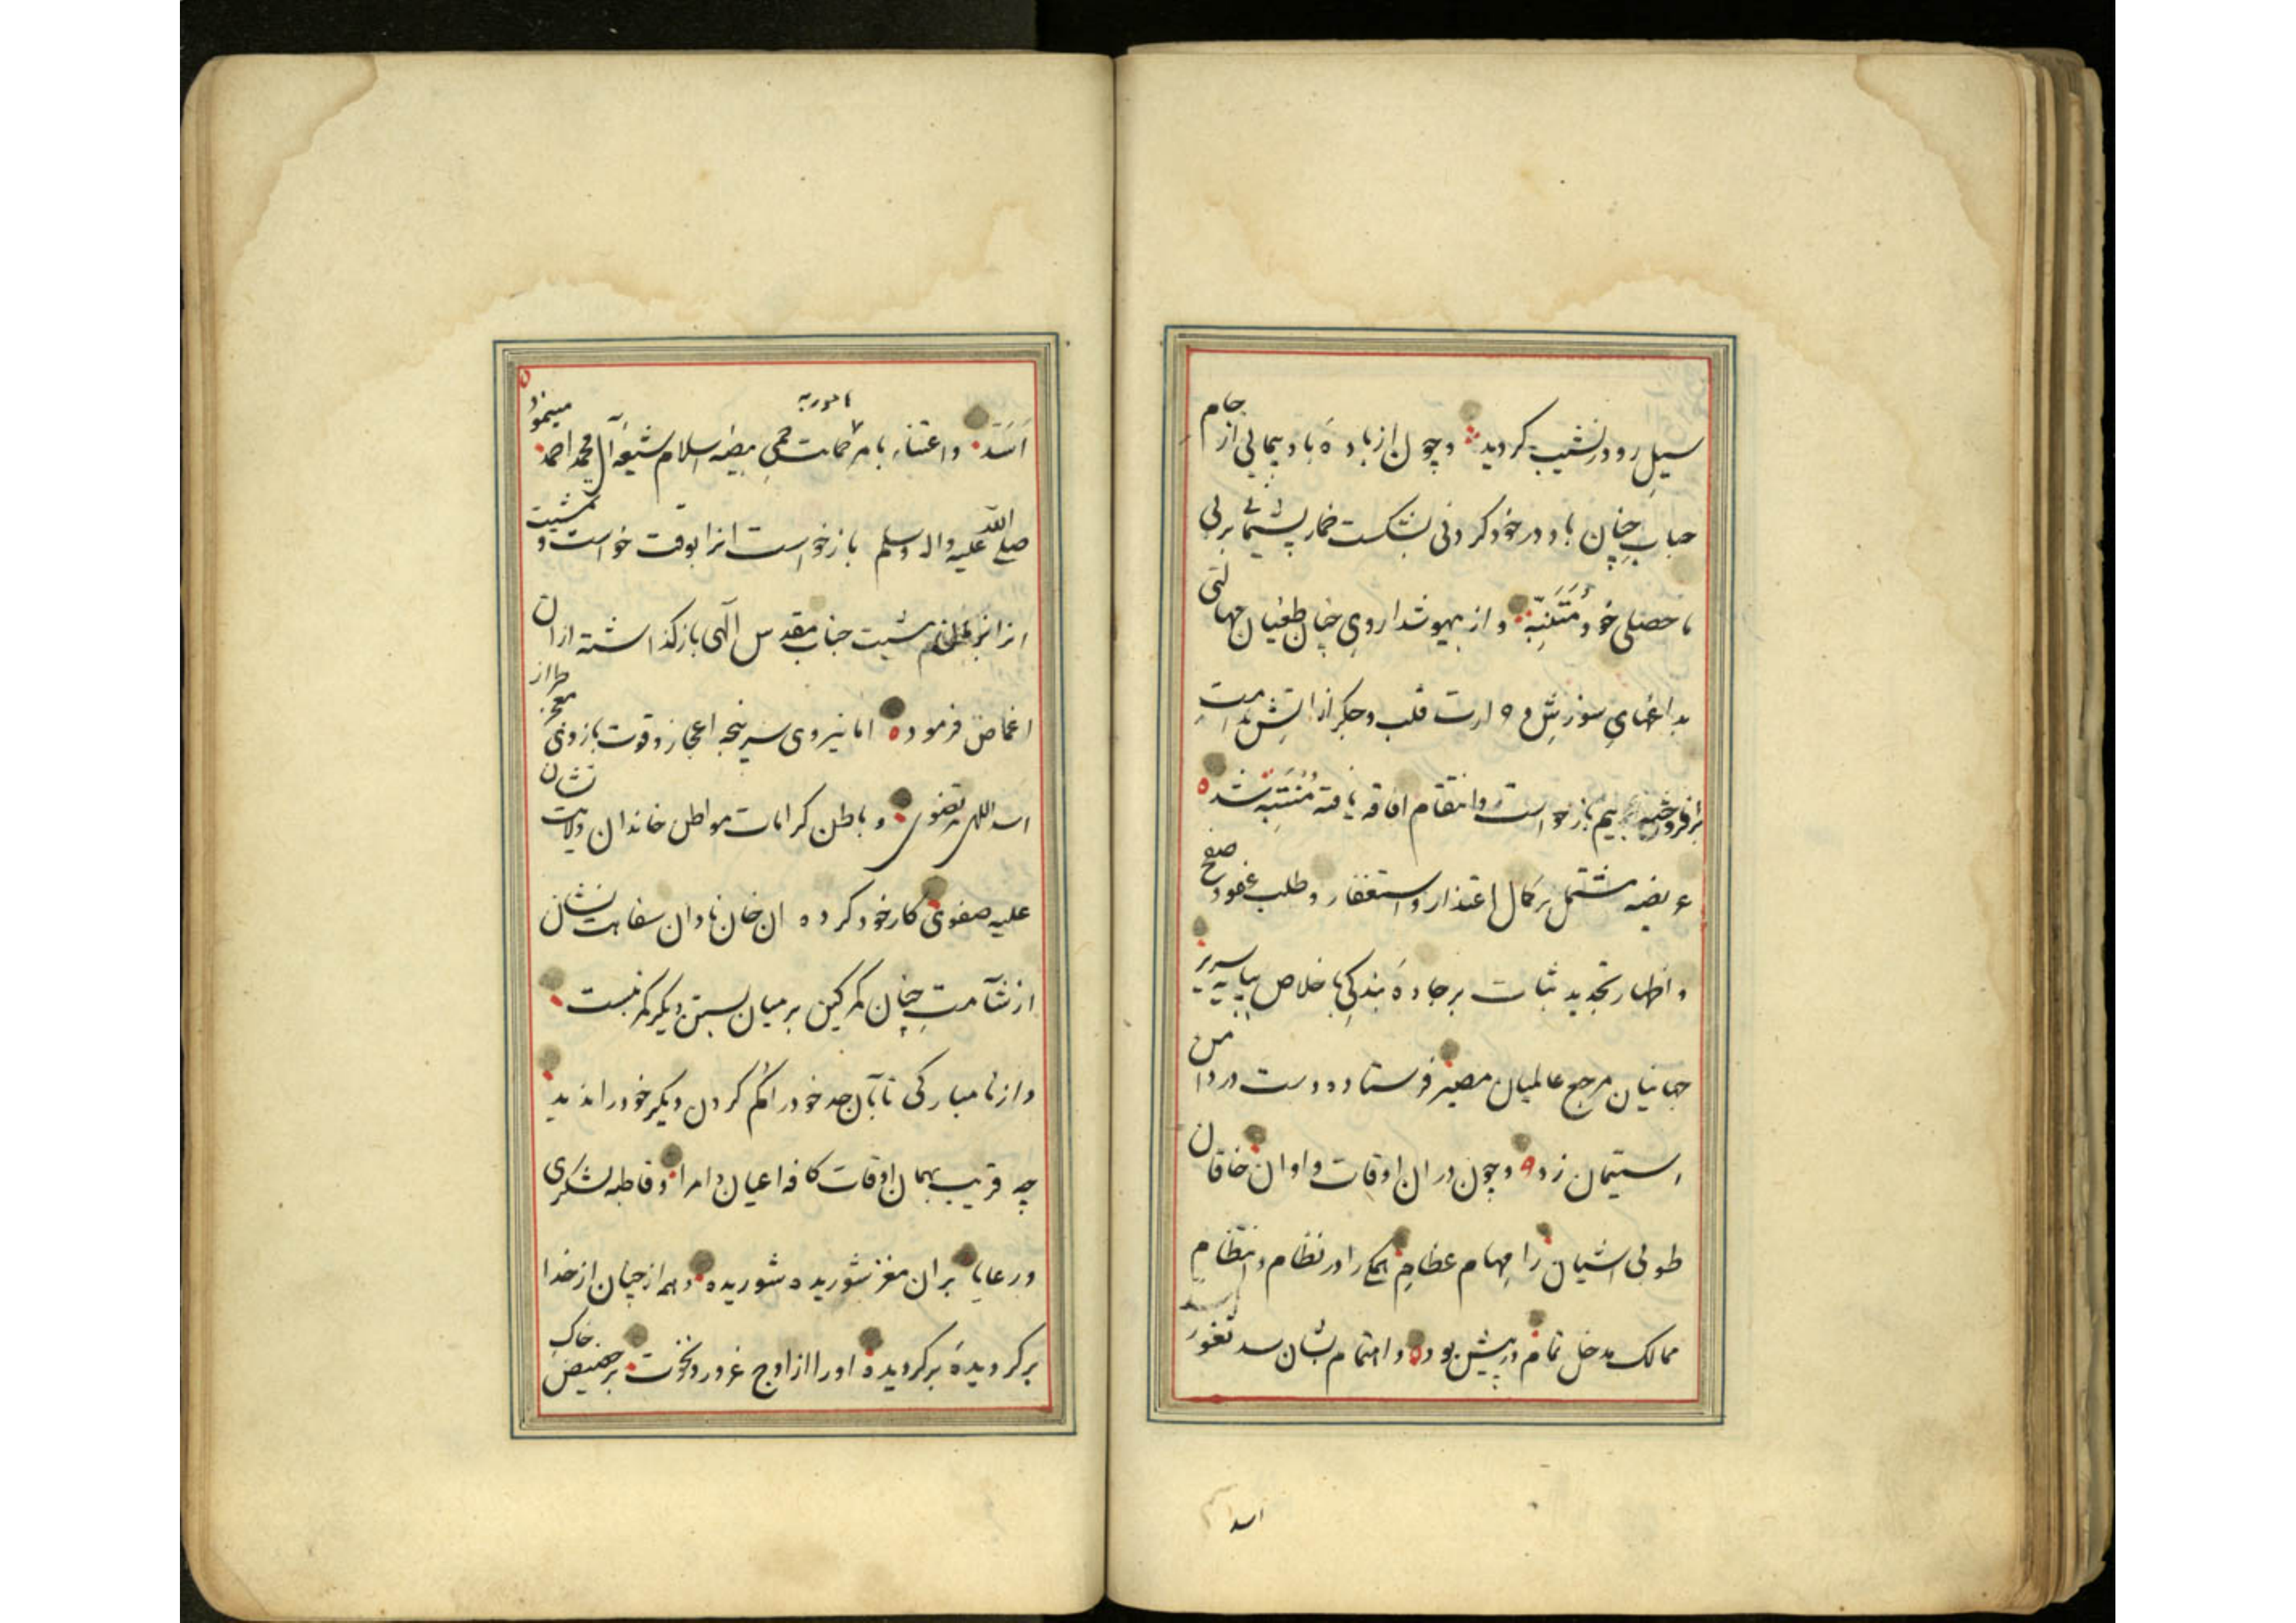 سیل رو در نشیب کردید و چون از باده باد پیمایی از جام
حباب چنان باد در خود کردنی بشکست خمار پشیمانی بر بی
ما حصلی خود متنبه و از بیهوشداروی خان طغیان جهالتی
بد اعتنای سوزش و حرارت قلب و جگر از آتش ندامت
برافروخته بیم بازخواست و انتقام افاقه یافته منتبه شده
عریضه مشتمل بر کمال اعتذار و استغفار و طلب عفو و صفح
و اظهار تجدید ثبات بر جاده بندگی با خلاص بپایه سریر
جهانیان مرجع عالمیان مصیر فرستاده دست در دامن
استیمان زده و چون در ان اوقات و اوان خاقان
طوبی اشیان را مهام عظام همکی را در نظام و انتظام
ممالک مدخل تمام در پیش بوده و اهتمام بشان سد ثغور
اسد
مامور به
اسد و اعتناء بامر حمایت حمی بیضه اسلام شیعه آل محمد احمد مینمود
صلی الله علیه واله وسلم بازخواست انرا بوقت خواست و مشیت
انرا مشیت جناب مقدس آلهی بازگذاشته از ان
اغماض فرموده اما نیروی سرپنجه اعجاز و قوت بازوی معجز طراز
اسد اللهی مرتضوی و باطن کرامات مواطن خاندان ولایت نشان
علیه صفوی کار خود کرده ان خان نادان سفاهت نشان
از نشآمت چنان کمر کین بر میان بستن دیگر کمر نبست
و از نا مبارکی تا بان حد خود را گم کردن دیگر خود را ندید
چه قریب بهمان اوقات کافه اعیان و امرا و قاطبه لشکری
و رعایا بران مغز شوریده شوریده و همه از چنان از خدا
برکردیده برکردیده او را از اوج غرور و نخوت بر حضیض خاک